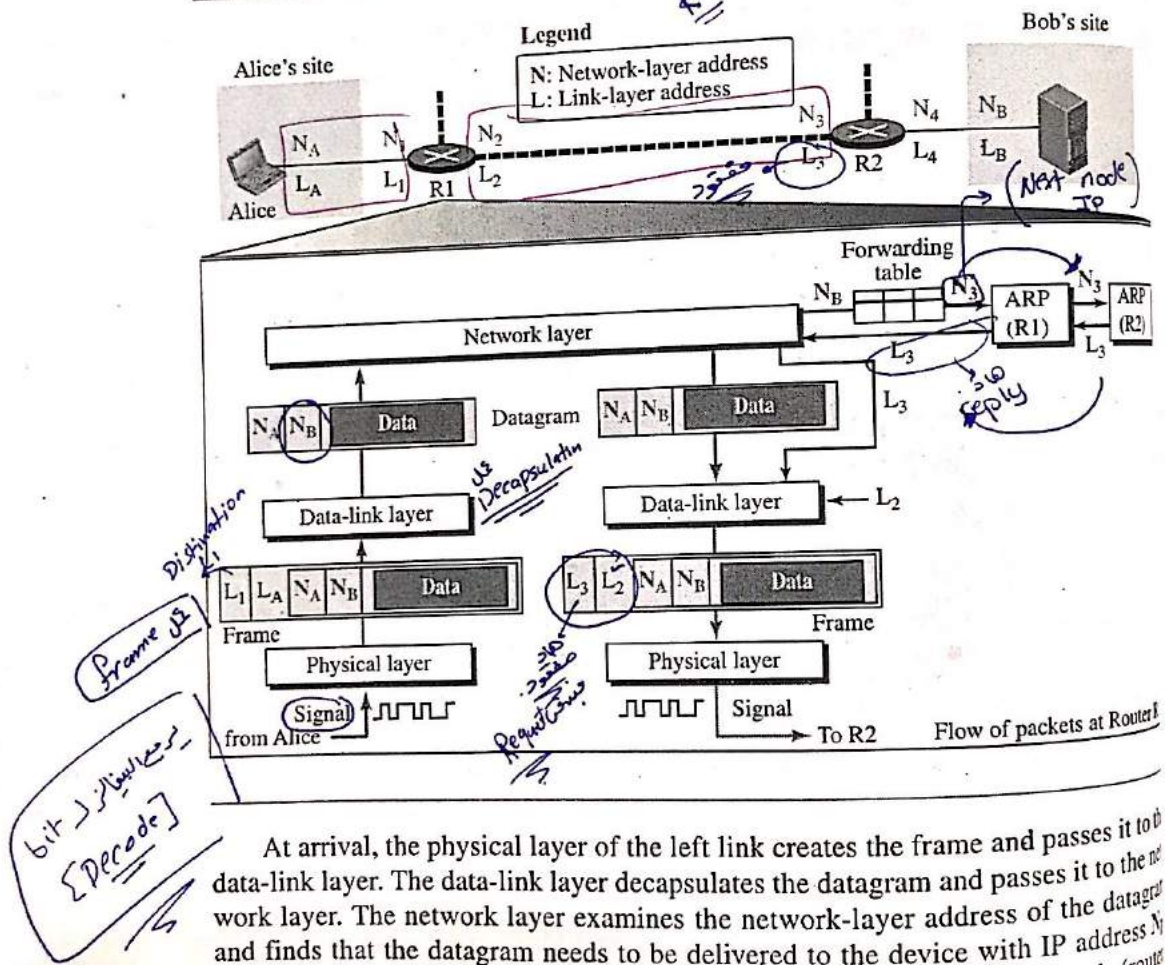 Legend
N: Network-layer address
L: Link-layer address
Alice's site
Bob's site
N_A
N_1
N_2
N_3
N_4
N_B
L_A
L_1
R1
L_2
L_3
R2
L_4
L_B
Alice
مفقود
(Next node
IP)
Forwarding
table
N_B
N_3
ARP
(R1)
N_3
ARP
(R2)
L_3
Network layer
L_3
reply
L_3
N_A N_B Data
Datagram
N_A N_B Data
Decapsulatin
Data-link layer
Data-link layer
L_2
Distination
L_1
L_1 L_A N_A N_B Data
L_3 L_2 N_A N_B Data
Frame
Frame
frame
Physical layer
Physical layer
مفقود
Signal
Signal
from Alice
To R2
Flow of packets at Router
bit
[Decode]
At arrival, the physical layer of the left link creates the frame and passes it to
data-link layer. The data-link layer decapsulates the datagram and passes it to the
work layer. The network layer examines the network-layer address of the
and finds that the datagram needs to be delivered to the device with IP address